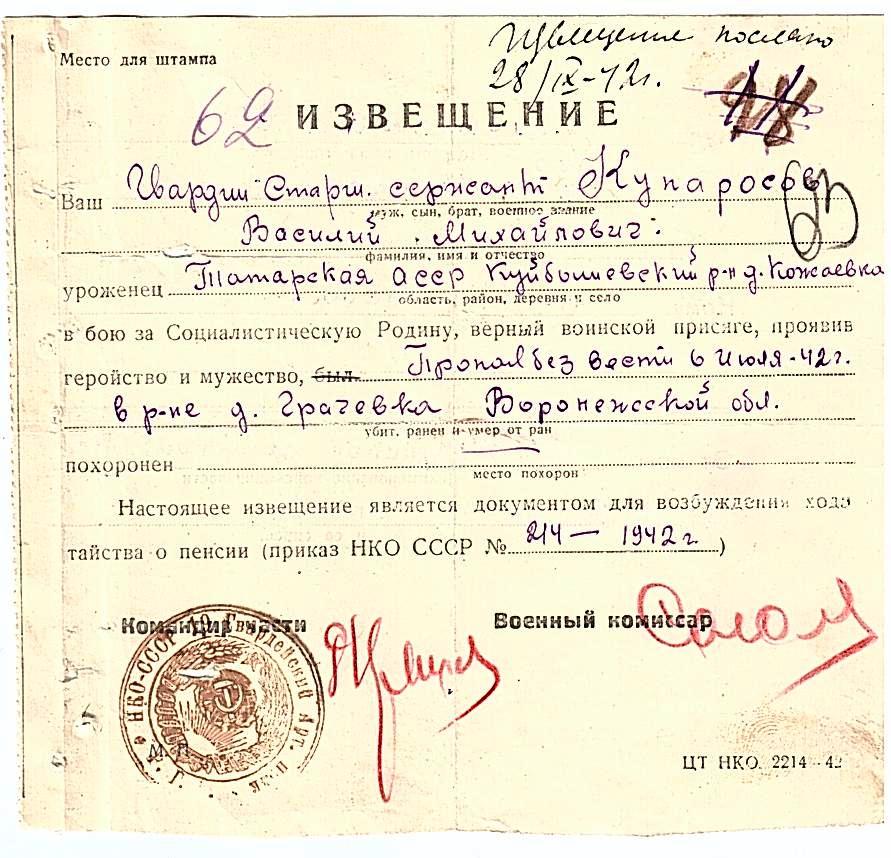 Место для штампа
Извещение послано
28/IX-42г.
62 ИЗВЕЩЕНИЕ
Ваш Гвардии Старш. сержант
муж, сын, брат, военное звание
Василий Михайлович.
фамилия, имя и отчество
уроженец Татарская АССР Куйбышевский р-н д. Кожаевка
область, район, деревня и село
в бою за Социалистическую Родину, верный воинской присяге, проявив
геройство и мужество, был Пропал без вести 6 Июля-42г.
в р-не д. Грачевка Воронежской обл.
убит, ранен и умер от ран
похоронен
место похорон
Настоящее извещение является документом для возбуждения хода
тайства о пенсии (приказ НКО СССР № 214 — 1942 г.)
Командир части Военный комиссар
НКО-СССР Гвардейский Арт. полк
М. П.
ЦТ НКО. 2214—42